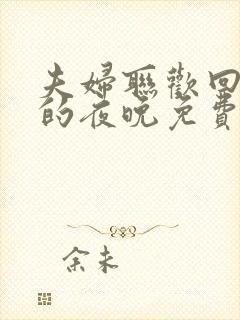 夫婦聯歡回
的夜晚免費
余未